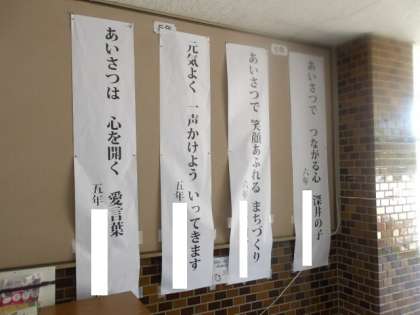 あいさつで　つながる心　深井の子
六年
あいさつで　笑顔あふれる　まちづくり
六年
元気よく　一声かけよう　いってきます
五年
あいさつは　心を開く　愛言葉
五年